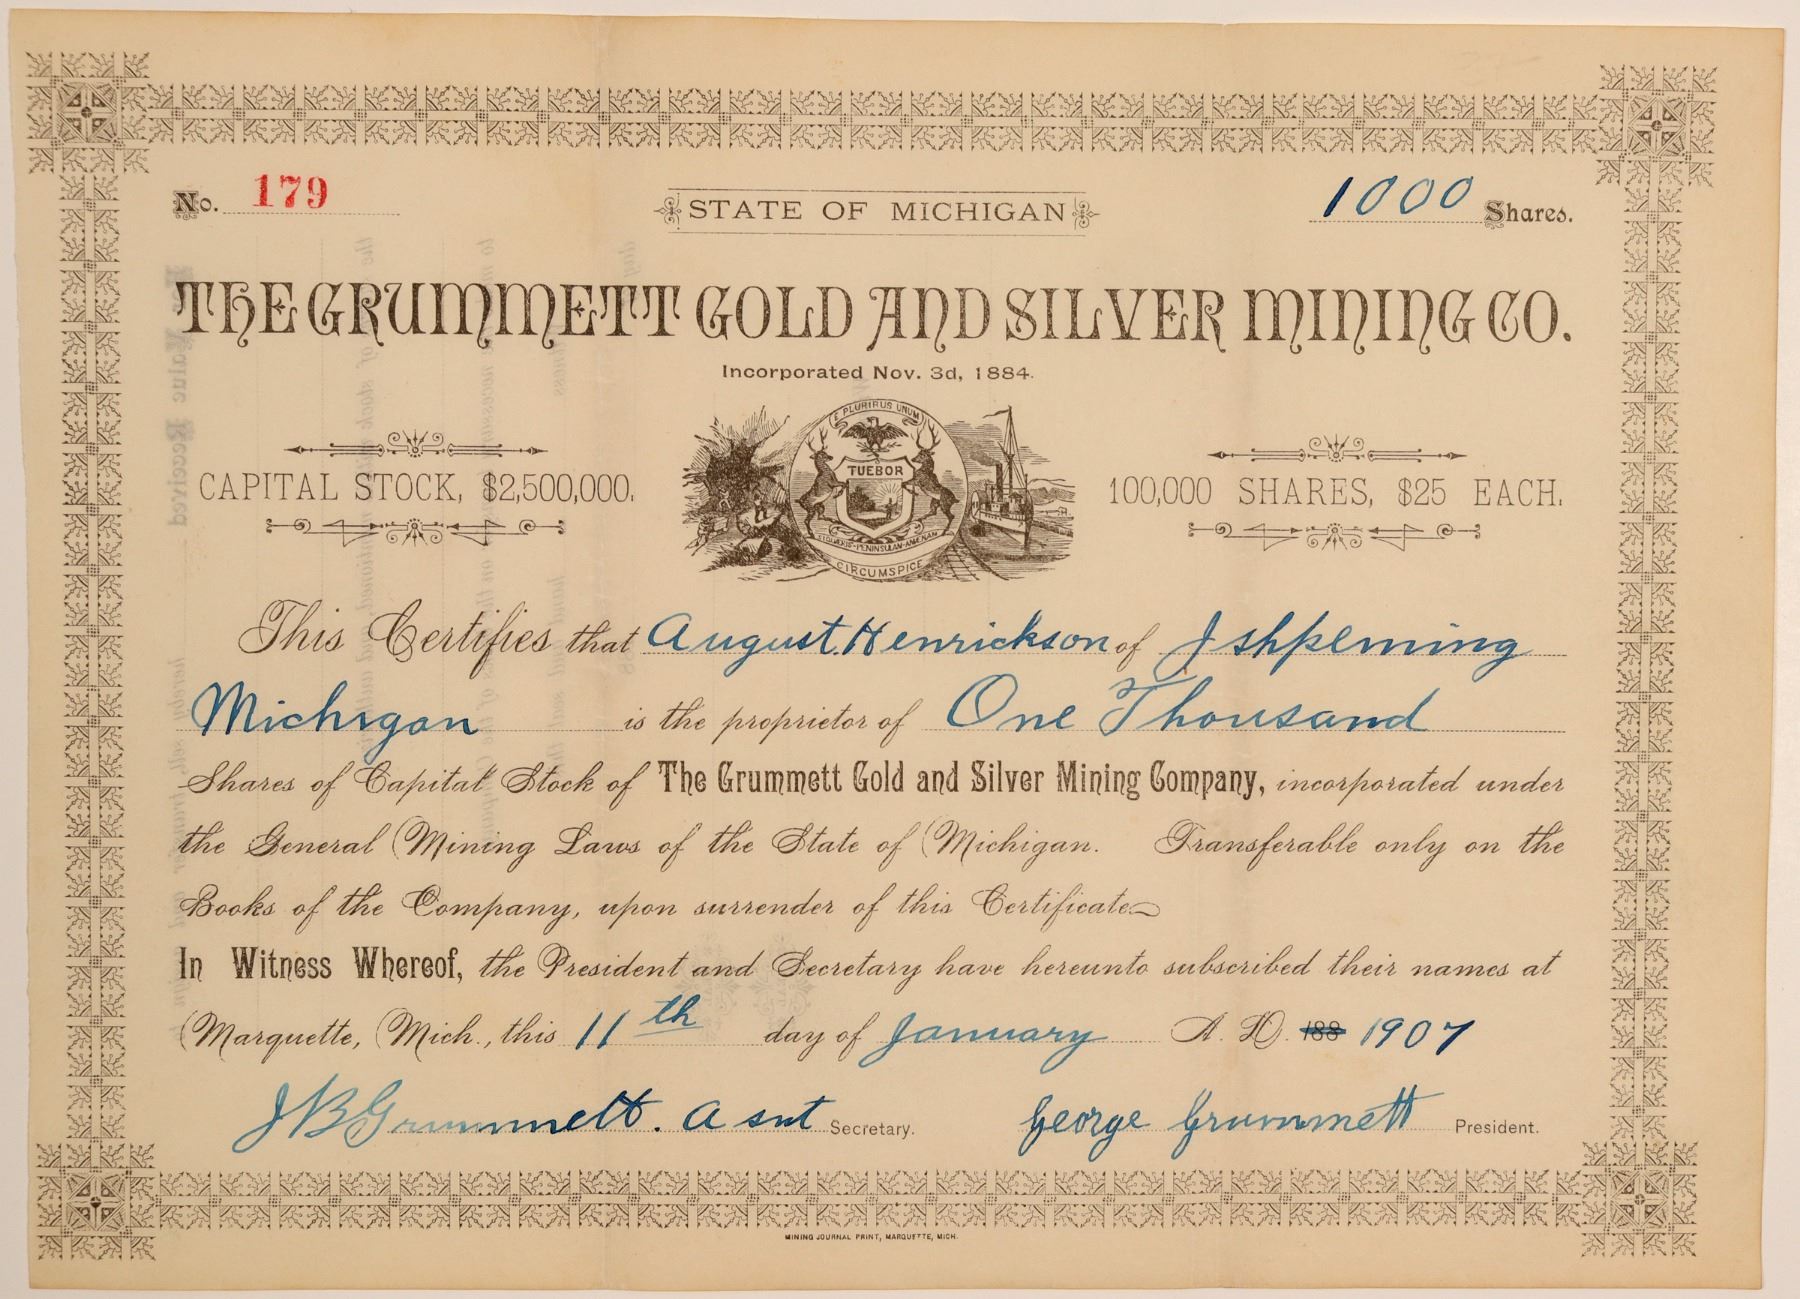 No. 179
STATE OF MICHIGAN
1000 Shares.
THE GRUMMETT GOLD AND SILVER MINING CO.
Incorporated Nov. 3d, 1884.
E PLURIBUS UNUM
TUEBOR
CIRCUMSPICE
CAPITAL STOCK, $2,500,000.
100,000 SHARES, $25 EACH.
This Certifies that August Henrickson of Ishpeming
Michigan is the proprietor of One Thousand
Shares of Capital Stock of The Grummett Gold and Silver Mining Company, incorporated under
the General Mining Laws of the State of Michigan. Transferable only on the
Books of the Company, upon surrender of this Certificate
In Witness Whereof, the President and Secretary have hereunto subscribed their names at
Marquette, Mich., this 11th day of January A. D. 188 1907
J B Grummett. Asnt Secretary. George Grummett President.
MINING JOURNAL PRINT, MARQUETTE, MICH.